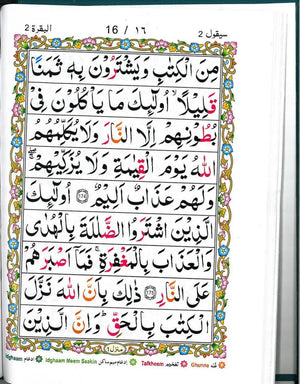 البقرة ٢ 16 / ١٦ سيقول ٢
مِنَ الْكِتٰبِ وَيَشْتَرُوْنَ بِهٖ ثَمَنًا
قَلِيْلًا ۙ اُولٰٓئِكَ مَا يَاْكُلُوْنَ فِيْ
بُطُوْنِهِمْ اِلَّا النَّارَ وَلَا يُكَلِّمُهُمُ
اللّٰهُ يَوْمَ الْقِيٰمَةِ وَلَا يُزَكِّيْهِمْ ۚ
وَلَهُمْ عَذَابٌ اَلِيْمٌ ﴿١٧٤﴾ اُولٰٓئِكَ
الَّذِيْنَ اشْتَرَوُا الضَّلٰلَةَ بِالْهُدٰى
وَالْعَذَابَ بِالْمَغْفِرَةِ ۚ فَمَاۤ اَصْبَرَهُمْ
عَلَى النَّارِ ﴿١٧٥﴾ ذٰلِكَ بِاَنَّ اللّٰهَ نَزَّلَ
الْكِتٰبَ بِالْحَقِّ ؕ وَاِنَّ الَّذِيْنَ
منزل ١
Idghaam ادغام Idghaam Meem Saakin ادغام ميم ساكن Talkheem تفخيم Ghunna غنہ